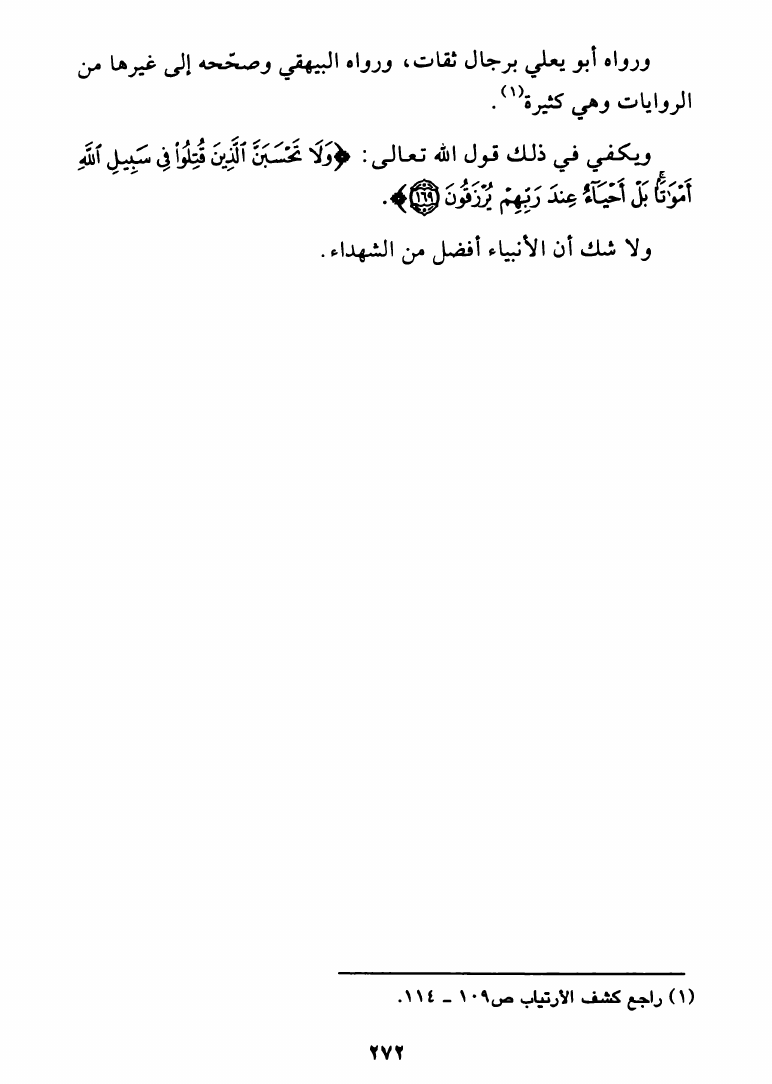 ورواه أبو يعلي برجال ثقات، ورواه البيهقي وصحّحه إلى غيرها من
الروايات وهي كثيرة(١).
ويكفي في ذلك قول الله تعالى: ﴿وَلَا تَحْسَبَنَّ ٱلَّذِينَ قُتِلُوا۟ فِى سَبِيلِ ٱللَّهِ
أَمْوَٰتًۢا بَلْ أَحْيَآءٌ عِندَ رَبِّهِمْ يُرْزَقُونَ ١٦٩﴾.
ولا شك أن الأنبياء أفضل من الشهداء.
(١) راجع كشف الأرتياب ص١٠٩ ـ ١١٤.
٢٧٢